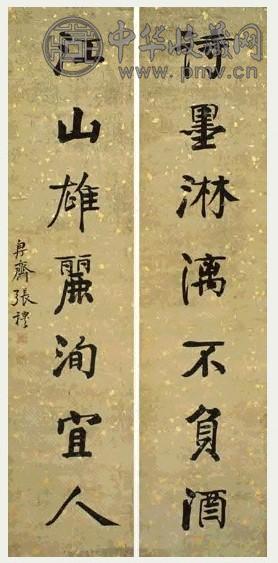 中华收藏网
www.pmv.cn
詩墨淋漓不負酒
江山雄麗洵宜人
齋張禮